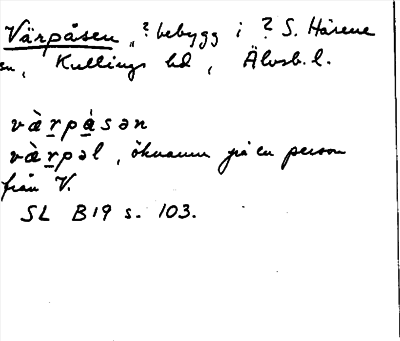 Värpåsen, ? bebygg i ? S. Härene
sn, Kullings hd, Älvsb. l.
væ̀rpås̀ən
væ̀rpəl, öknamn på en person
från V.
SL B19 s. 103.